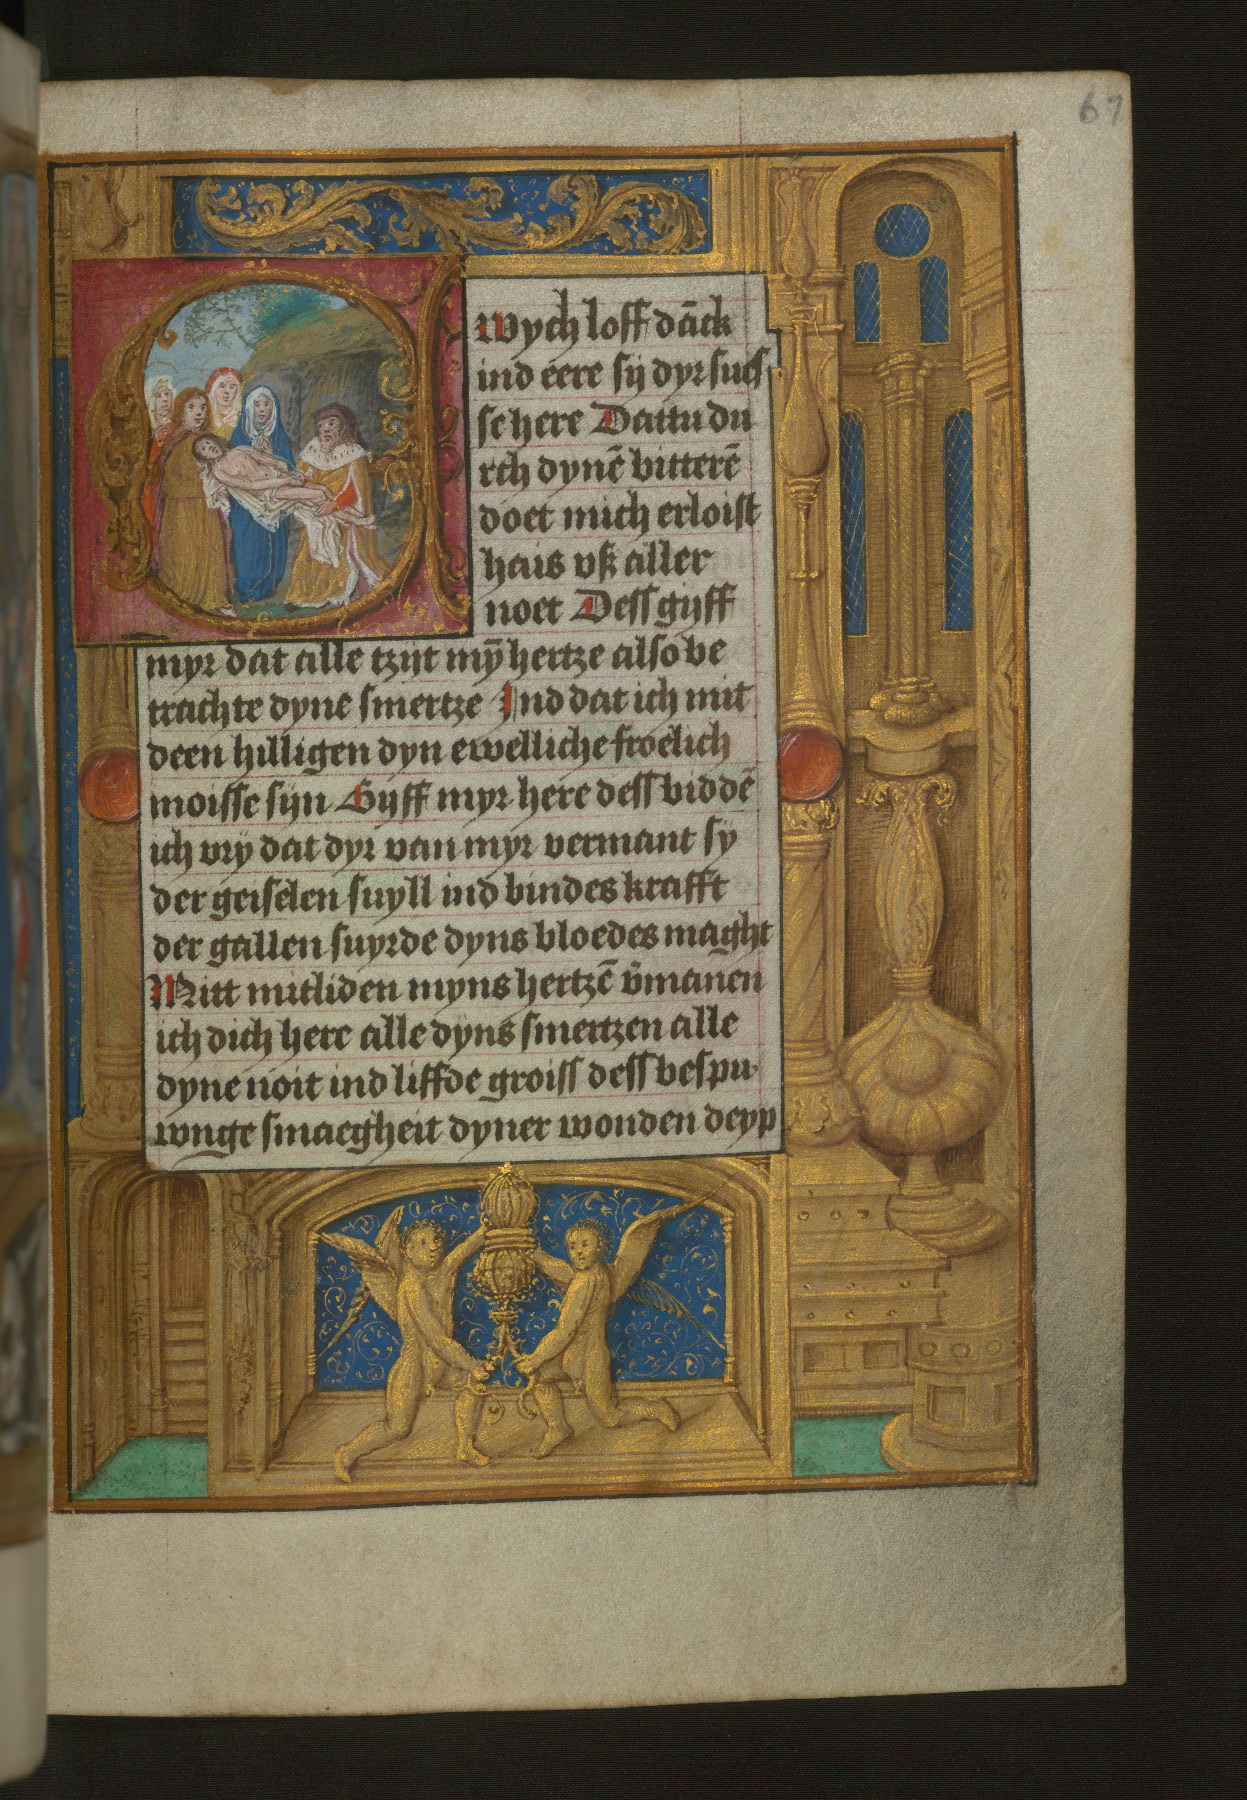 67
Ewych loff dāck
ind eere sij dyr sues
se here Dattu du
rch dynē bitterē
doet mich erloist
hais vß aller
noet Dess gyff
myr dat alle tzijt mȳ hertze also be
trachte dyne smertze Ind dat ich mit
deen hilligen dyn ewelliche froelich
moisse sijn Gijff myr here dess biddē
ich vrÿ dat dyr van myr vermant sÿ
der geiselen suyll ind bindes krafft
der gallen suyrde dyns bloedes maght
Mitt mitliden myns hertzē v̄manen
ich dich here alle dyns smertzen alle
dyne noit ind liffde groiss dess bespu
wnge smaegheit dyner wonden deyp